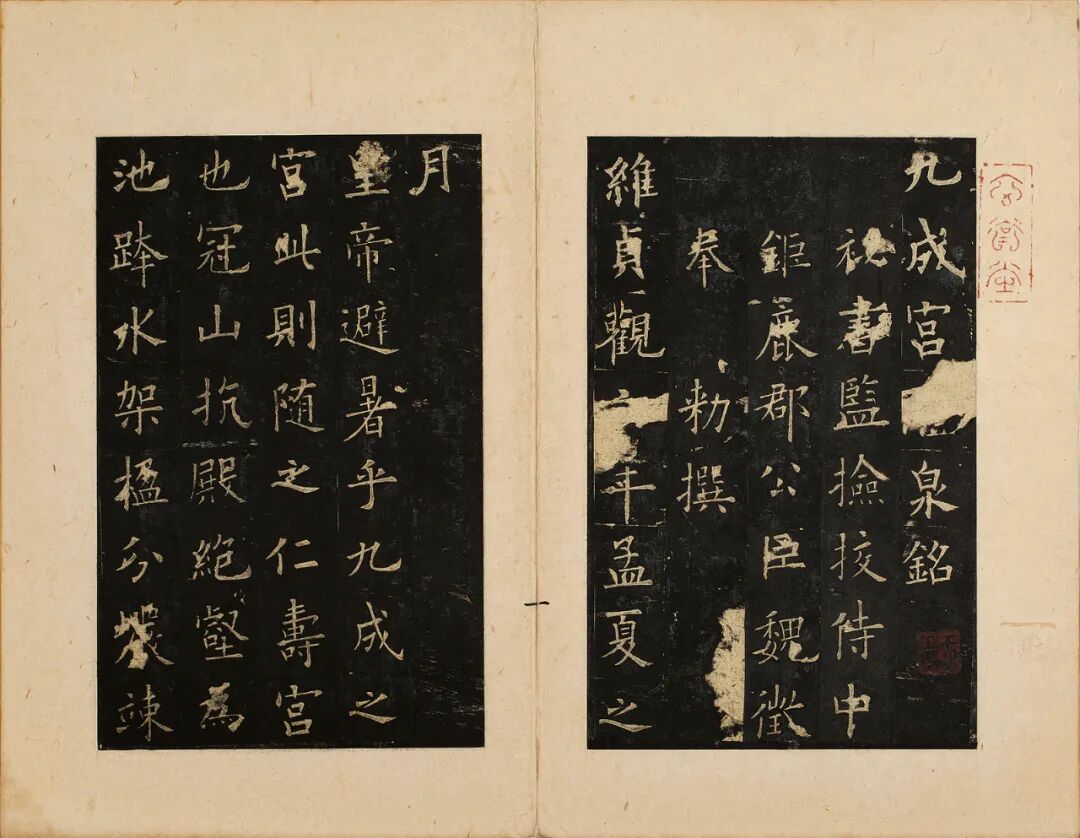 九成宮泉銘
祕書監撿挍侍中
鉅鹿郡公臣魏徵
奉勑撰
維貞觀年孟夏之
月
皇帝避暑乎九成之
宮此則隨之仁壽宮
也冠山抗殿絶壑為
池跨水架楹分巖竦